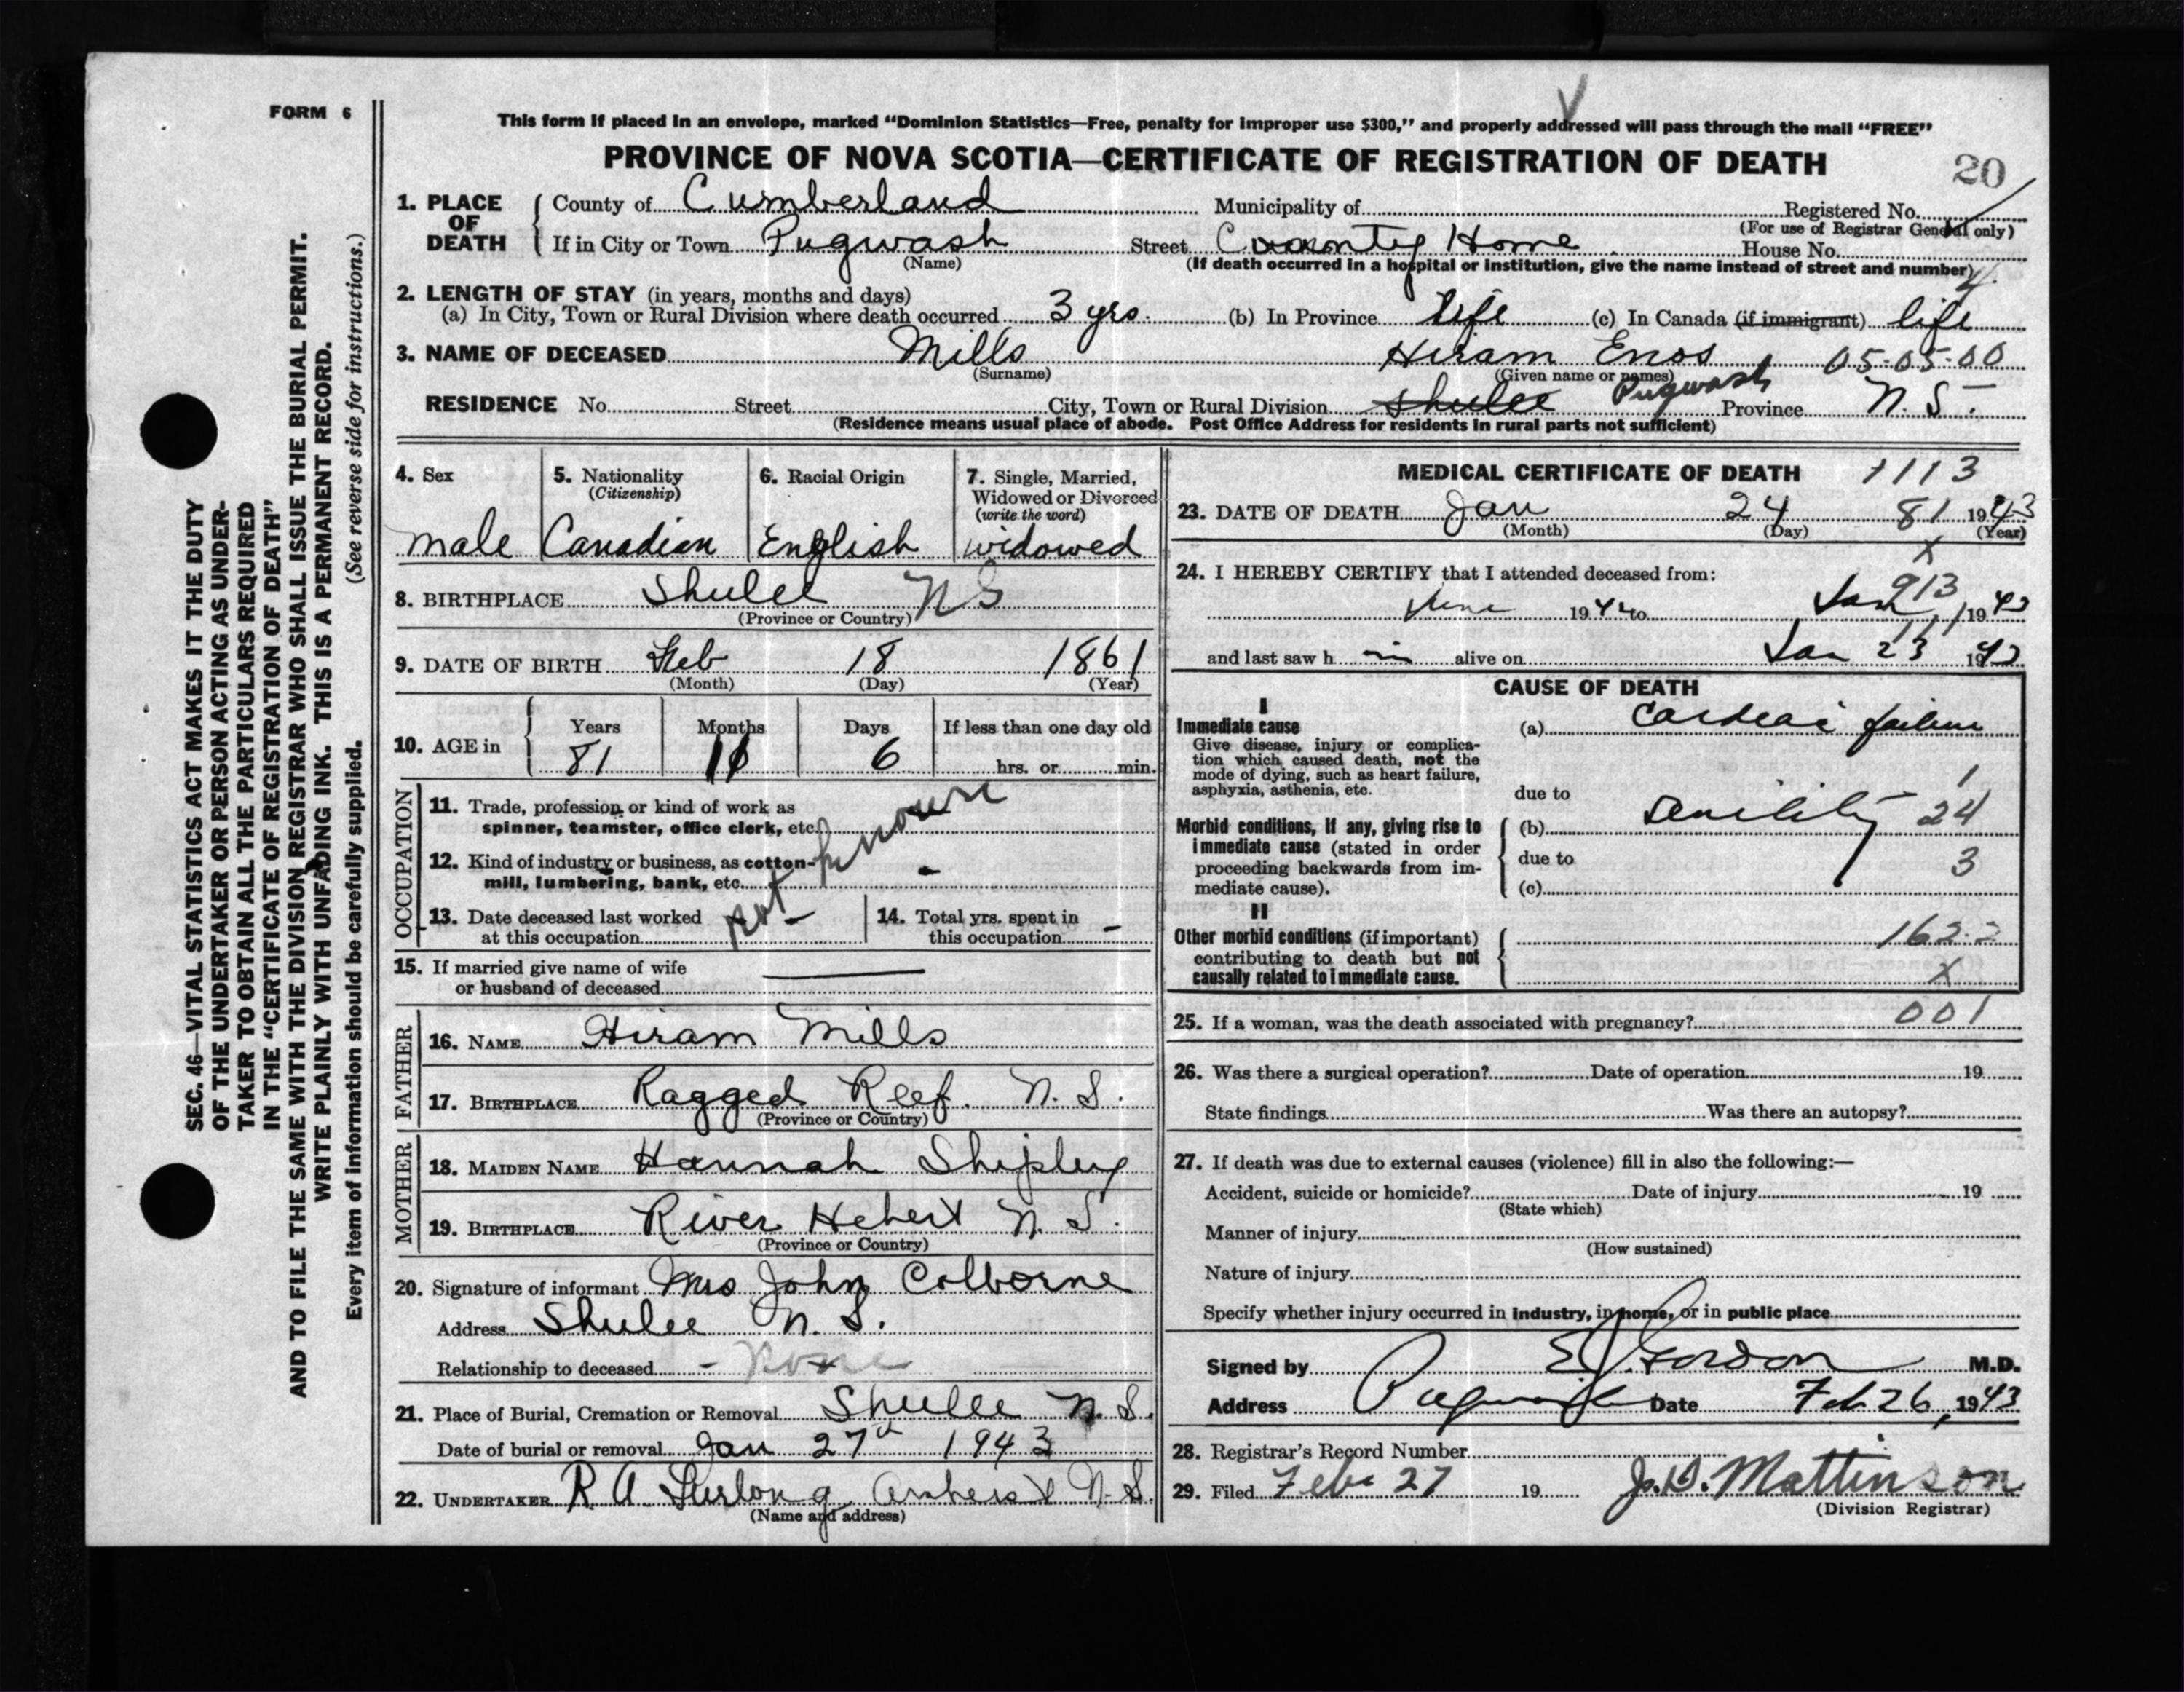 FORM 6
This form if placed in an envelope, marked “Dominion Statistics—Free, penalty for improper use $300,” and properly addressed will pass through the mail “FREE”
PROVINCE OF NOVA SCOTIA—CERTIFICATE OF REGISTRATION OF DEATH
20
1. PLACE OF DEATH County of Cumberland Municipality of Registered No.
(For use of Registrar General only)
If in City or Town Pugwash Street County Home House No.
(Name) (If death occurred in a hospital or institution, give the name instead of street and number)
2. LENGTH OF STAY (in years, months and days)
(a) In City, Town or Rural Division where death occurred 3 yrs. (b) In Province life (c) In Canada (if immigrant) life
3. NAME OF DECEASED Mills Hiram Enos 05-05-00
(Surname) (Given name or names)
RESIDENCE No. Street City, Town or Rural Division Shulee Pugwash Province N.S.
(Residence means usual place of abode. Post Office Address for residents in rural parts not sufficient)
4. Sex 5. Nationality (Citizenship) 6. Racial Origin 7. Single, Married, Widowed or Divorced (write the word)
male Canadian English widowed
8. BIRTHPLACE Shulee NS
(Province or Country)
9. DATE OF BIRTH Feb 18 1861
(Month) (Day) (Year)
10. AGE in Years Months Days If less than one day old
81 11 6 hrs. or min.
OCCUPATION
11. Trade, profession or kind of work as
spinner, teamster, office clerk, etc.
12. Kind of industry or business, as cotton-
mill, lumbering, bank, etc. -
not known
13. Date deceased last worked at this occupation - 14. Total yrs. spent in this occupation -
15. If married give name of wife
or husband of deceased
FATHER
16. NAME Hiram Mills
17. BIRTHPLACE Ragged Reef. N.S.
(Province or Country)
MOTHER
18. MAIDEN NAME Hannah Shipley
19. BIRTHPLACE River Hebert N.S.
(Province or Country)
20. Signature of informant Mrs John Colborne
Address Shulee N.S.
Relationship to deceased - none
21. Place of Burial, Cremation or Removal Shulee N.S.
Date of burial or removal Jan 27th 1943
22. UNDERTAKER R A Furlong Amherst N.S.
(Name and address)
MEDICAL CERTIFICATE OF DEATH 1113
23. DATE OF DEATH Jan 24 81 1943
(Month) (Day) (Year)
X
24. I HEREBY CERTIFY that I attended deceased from:
913
June 1942 to Jan 1943
and last saw h im alive on Jan 23 1943
CAUSE OF DEATH
I
Immediate cause (a) Cardeac failure
Give disease, injury or complica-
tion which caused death, not the
mode of dying, such as heart failure,
asphyxia, asthenia, etc. due to
1
Morbid conditions, if any, giving rise to (b) Senility 24
immediate cause (stated in order
proceeding backwards from im- due to 3
mediate cause). (c)
II
Other morbid conditions (if important) 162.2
contributing to death but not
causally related to immediate cause. X
25. If a woman, was the death associated with pregnancy? 001
26. Was there a surgical operation? Date of operation 19
State findings Was there an autopsy?
27. If death was due to external causes (violence) fill in also the following:—
Accident, suicide or homicide? Date of injury 19
(State which)
Manner of injury
(How sustained)
Nature of injury
Specify whether injury occurred in industry, in home, or in public place
Signed by E J Gordon M.D.
Address Pugwash Date Feb 26, 1943
28. Registrar's Record Number
29. Filed Feb 27 19 J.D. Mattinson
(Division Registrar)
SEC. 46—VITAL STATISTICS ACT MAKES IT THE DUTY
OF THE UNDERTAKER OR PERSON ACTING AS UNDER-
TAKER TO OBTAIN ALL THE PARTICULARS REQUIRED
IN THE “CERTIFICATE OF REGISTRATION OF DEATH”
AND TO FILE THE SAME WITH THE DIVISION REGISTRAR WHO SHALL ISSUE THE BURIAL PERMIT.
WRITE PLAINLY WITH UNFADING INK. THIS IS A PERMANENT RECORD.
Every item of information should be carefully supplied. (See reverse side for instructions.)